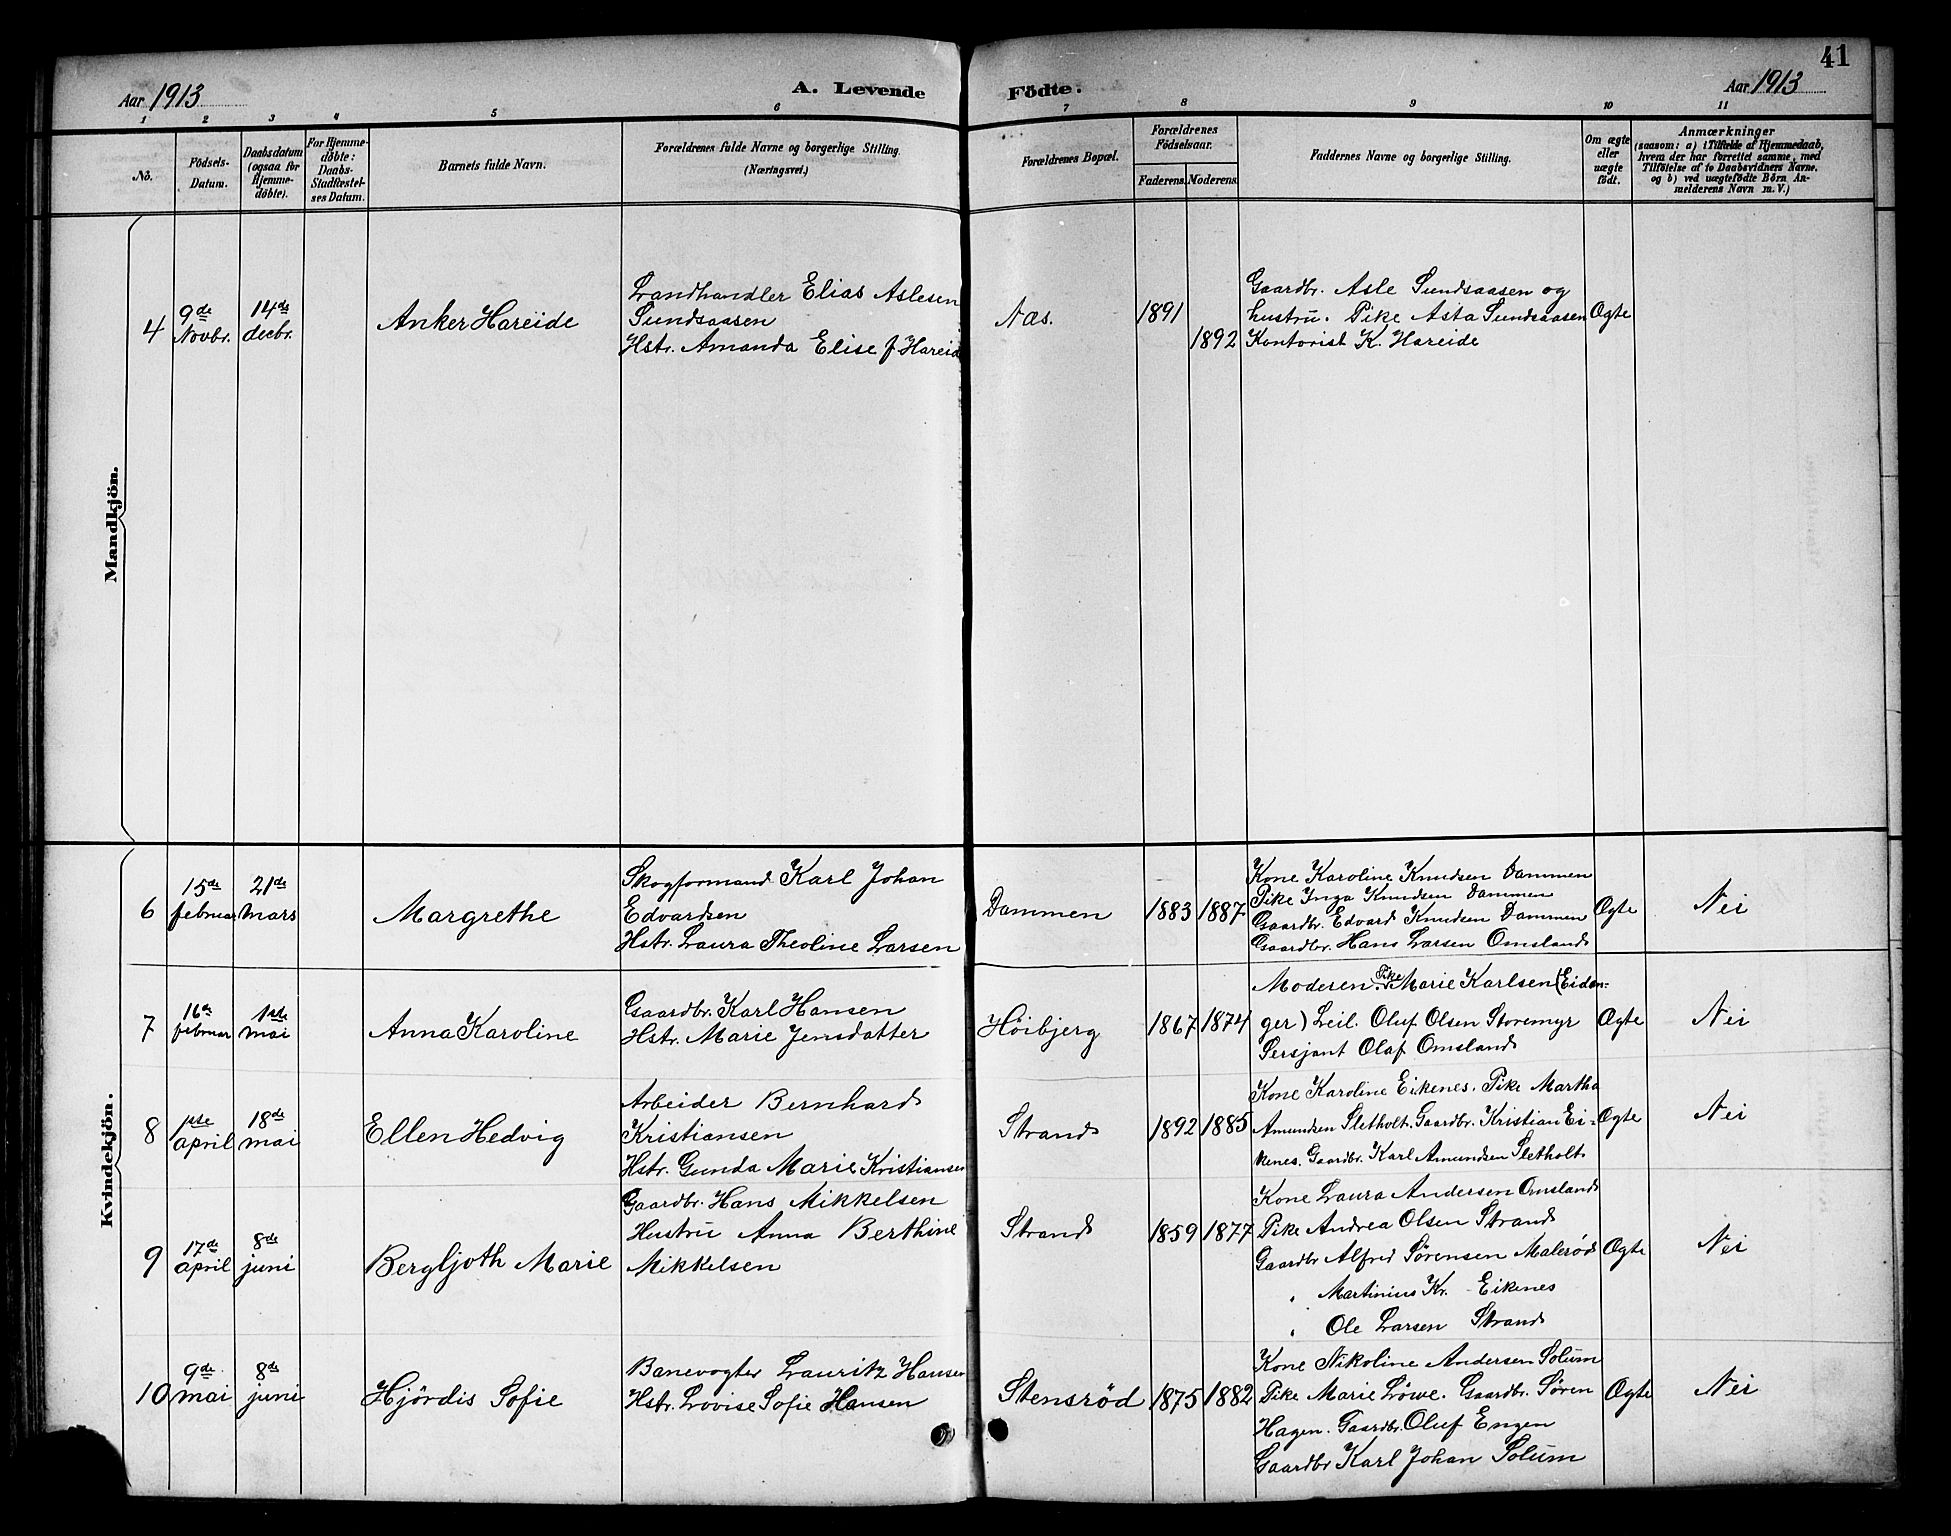 41
Aar 1913
A. Levende
Födte.
Aar 1913
1 2 3 4 5 6 7 8 9 10 11
No.
Födsels-
Datum.
Daabsdatum
(ogsaa for
Hjemme-
döbte).
For Hjemme-
döbte:
Daabs-
Stadfæstel-
ses Datum.
Barnets fulde Navn.
Forældrenes fulde Navne og borgerlige Stilling.
(Næringsvei.)
Forældrenes Bopæl.
Forældrenes
Födselsaar.
Faderens. Moderens.
Faddernes Navne og borgerlige Stilling.
Om ægte
eller
uægte
födt.
Anmærkninger
(saasom: a) i Tilfælde af Hjemmedaab,
hvem der har forrettet samme, med
Tilföielse af to Daabsvidners Navne,
og b) ved uægtefödte Börn An-
melderens Navn m. V.)
Mandkjön.
4
9de
Novbr.
14de
decbr.
Anker Hareide
Landhandler Elias Aslesen
Sundsaasen
Hstr. Amanda Elise f Hareide
Næs.
1891
1892
Gaardbr. Asle Sundsaasen og
hustru. Pike Asta Sundsaasen
Kontorist K. Hareide
Ægte
Kvindekjön.
6
15de
februar
21de
mars
Margrethe
Skogformand Karl Johan
Edvardsen
Hstr. Laura Theoline Larsen
Dammen
1883 1887
Kone Karoline Knudsen Dammen
Pike Inga Knudsen Dammen
Gaardbr. Edvard Knudsen Dammen
Gaardbr. Hans Larsen Omsland
Ægte
Nei
7
16de
februar
1ste
mai
Anna Karoline
Gaardbr. Karl Hansen
Hstr. Marie Jensdatter
Höibjerg
1867 1874
Moderen. Pike Marie Karlsen (Eidan-
ger) Leil. Oluf Olsen Storemyr
Sersjant Olaf Omsland
Ægte
Nei
8
1ste
april
18de
mai
Ellen Hedvig
Arbeider Bernhard
Kristiansen
Hstr. Gunda Marie Kristiansen
Strand
1892 1885
Kone Karoline Eikenes. Pike Martha
Amundsen Sletholt. Gaardbr. Kristian Ei-
kenes. Gaardbr. Karl Amundsen Sletholt
Ægte
Nei
9
17de
april
8de
juni
Bergljoth Marie
Gaardbr. Hans Mikkelsen
Hustru Anna Berthine
Mikkelsen
Strand
1859 1877
Kone Laura Andersen Omsland
Pike Andrea Olsen Strand
Gaardbr Alfred Sörensen Malerød
" Martinius Kr. Eikenes
" Ole Larsen Strand
Ægte
Nei
10
9de
mai
8de
juni
Hjördis Sofie
Banevogter Lauritz Hansen
Hstr. Lovise Sofie Hansen
Stensrød
1875 1882
Kone Nikoline Andersen Solum
Pike Marie Löwe. Gaardbr. Sören
Hagen. Gaardbr. Oluf Engen
Gaardbr Karl Johan Solum
Ægte
Nei